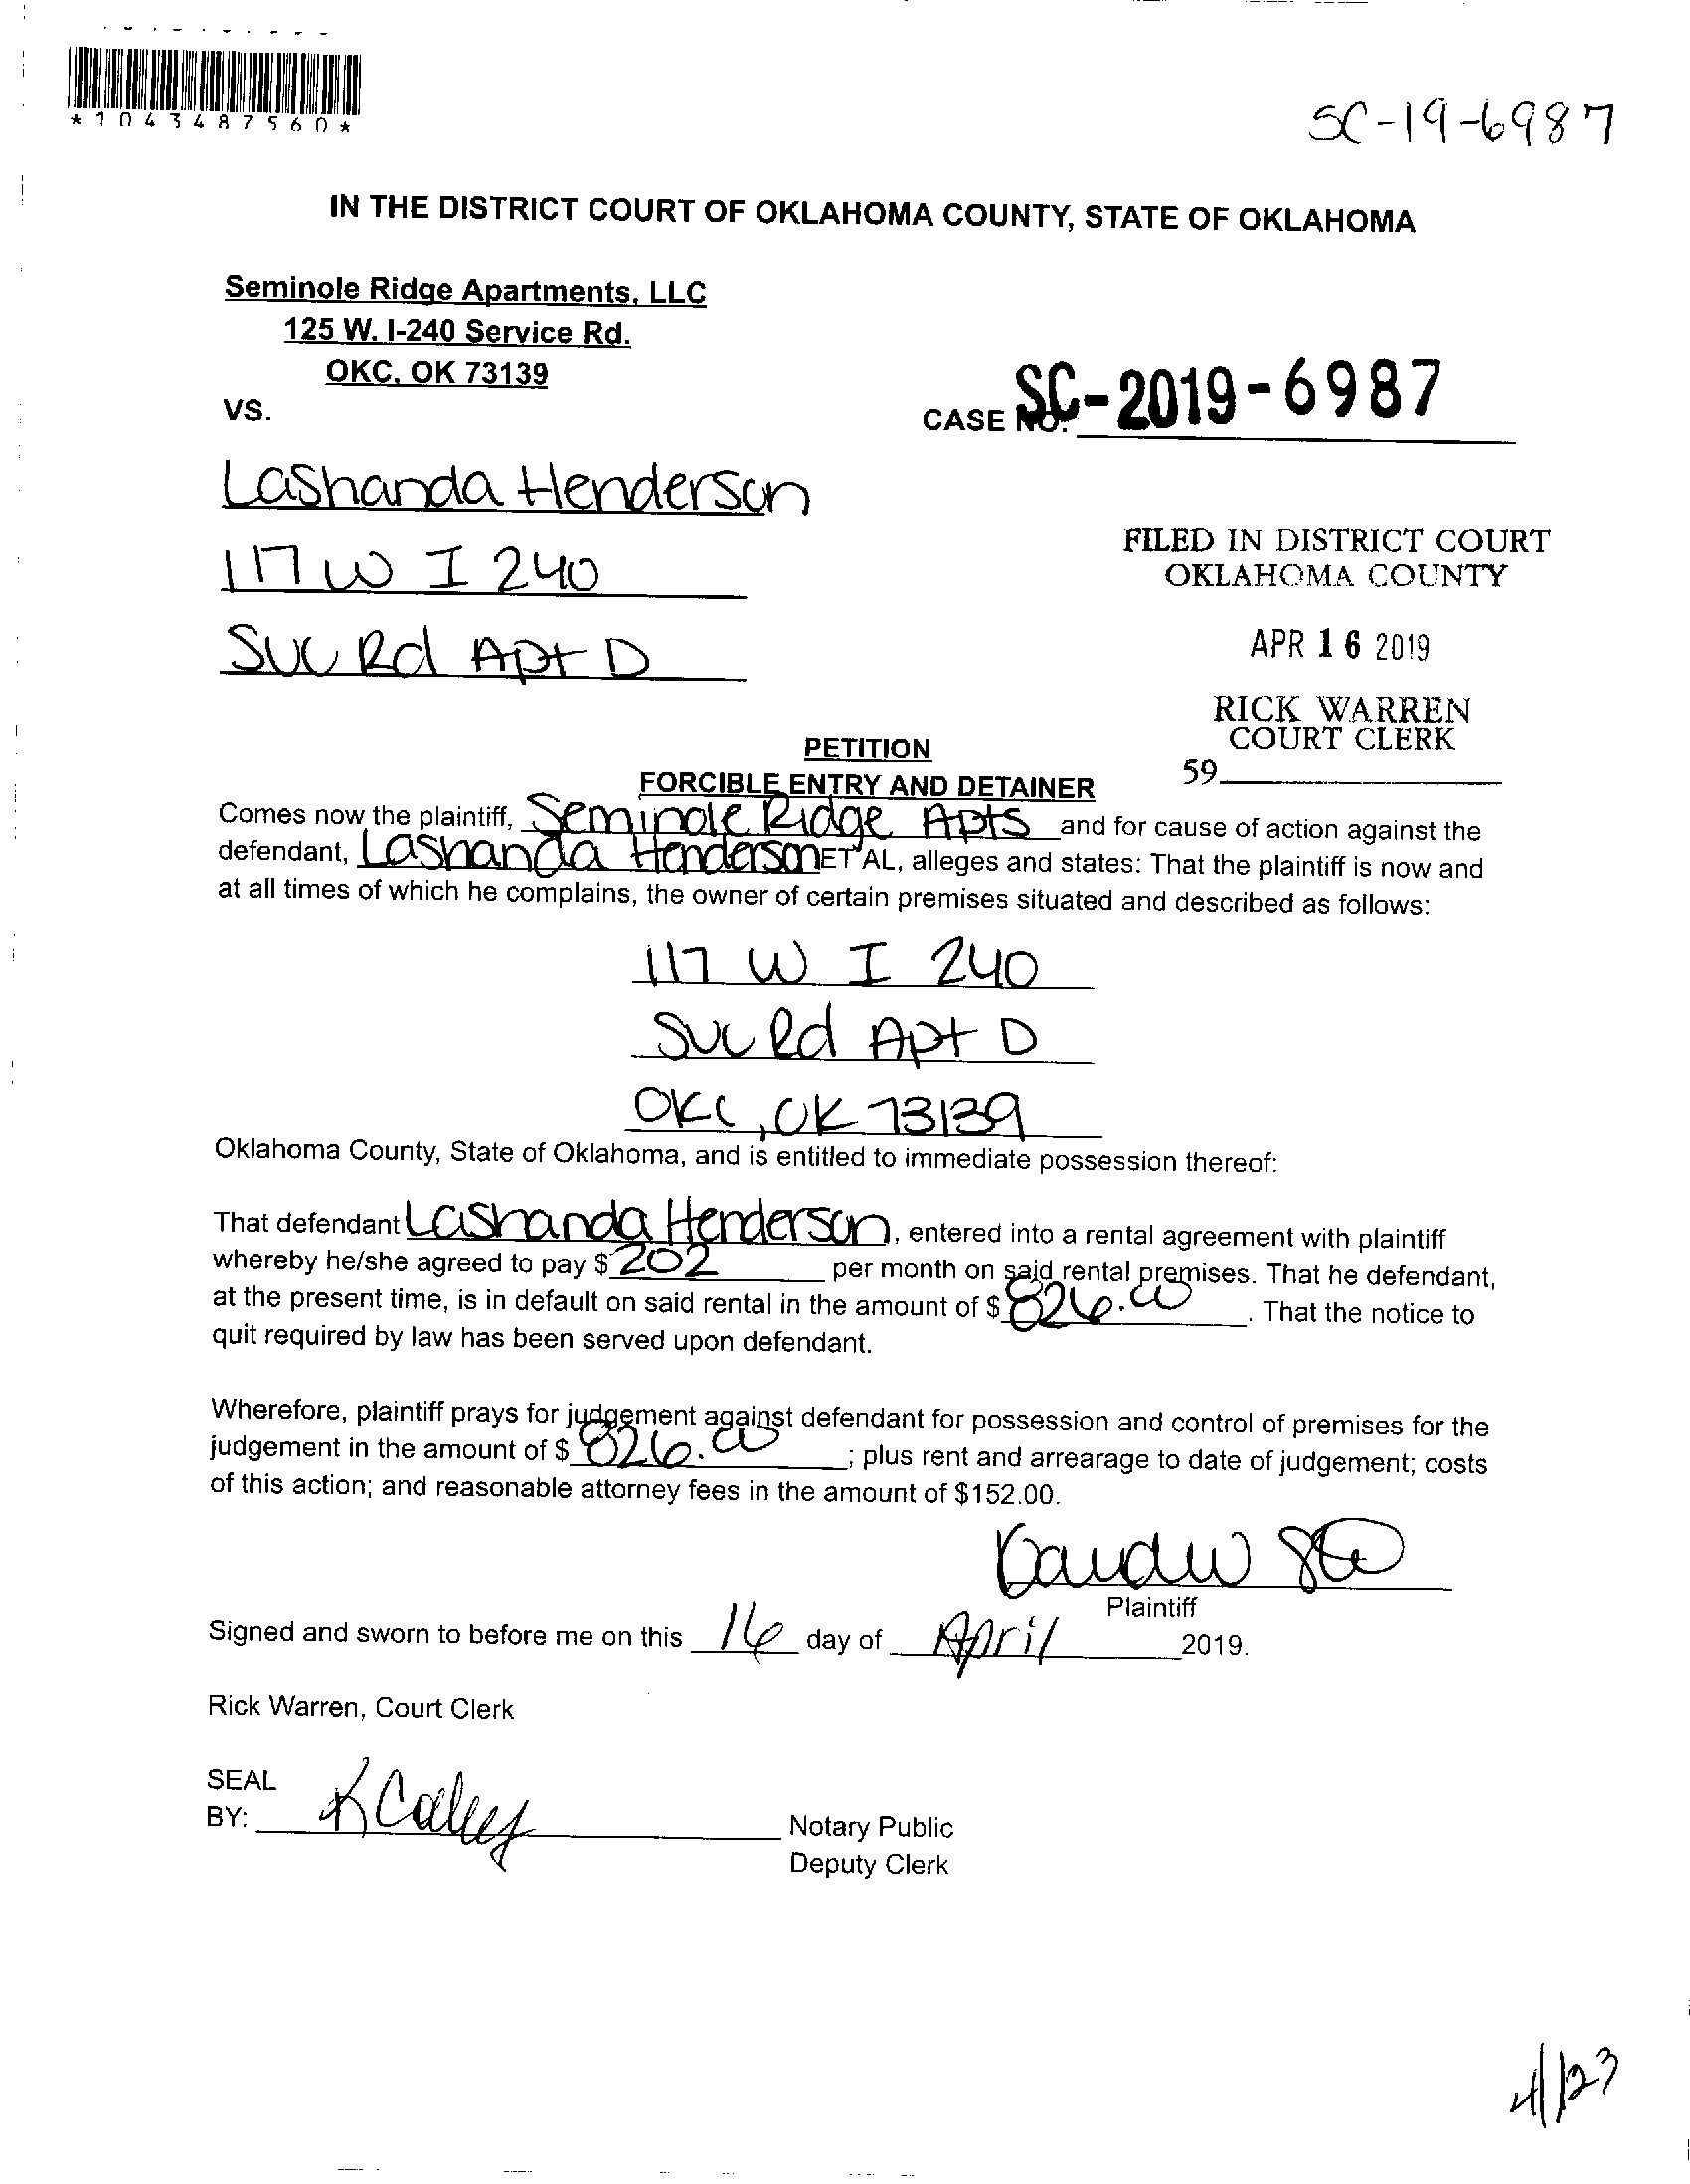 *1043487560*
SC-19-6987
IN THE DISTRICT COURT OF OKLAHOMA COUNTY, STATE OF OKLAHOMA
Seminole Ridge Apartments, LLC
125 W. I-240 Service Rd.
OKC, OK 73139
VS.
CASE NO. SC-2019-6987
LaShanda Henderson
117 W I 240
SVC Rd Apt D
FILED IN DISTRICT COURT
OKLAHOMA COUNTY
APR 16 2019
RICK WARREN
COURT CLERK
59
PETITION
FORCIBLE ENTRY AND DETAINER
Comes now the plaintiff, Seminole Ridge Apts and for cause of action against the
defendant, LaShanda Henderson ET AL, alleges and states: That the plaintiff is now and
at all times of which he complains, the owner of certain premises situated and described as follows:
117 W I 240
SVC Rd Apt D
OKC, OK 73139
Oklahoma County, State of Oklahoma, and is entitled to immediate possession thereof:
That defendant LaShanda Henderson, entered into a rental agreement with plaintiff
whereby he/she agreed to pay $ 202 per month on said rental premises. That he defendant,
at the present time, is in default on said rental in the amount of $ 826.00. That the notice to
quit required by law has been served upon defendant.
Wherefore, plaintiff prays for judgement against defendant for possession and control of premises for the
judgement in the amount of $ 826.00; plus rent and arrearage to date of judgement; costs
of this action; and reasonable attorney fees in the amount of $152.00.
Plaintiff
Signed and sworn to before me on this 16 day of April 2019.
Rick Warren, Court Clerk
SEAL
BY:
Notary Public
Deputy Clerk
4/23